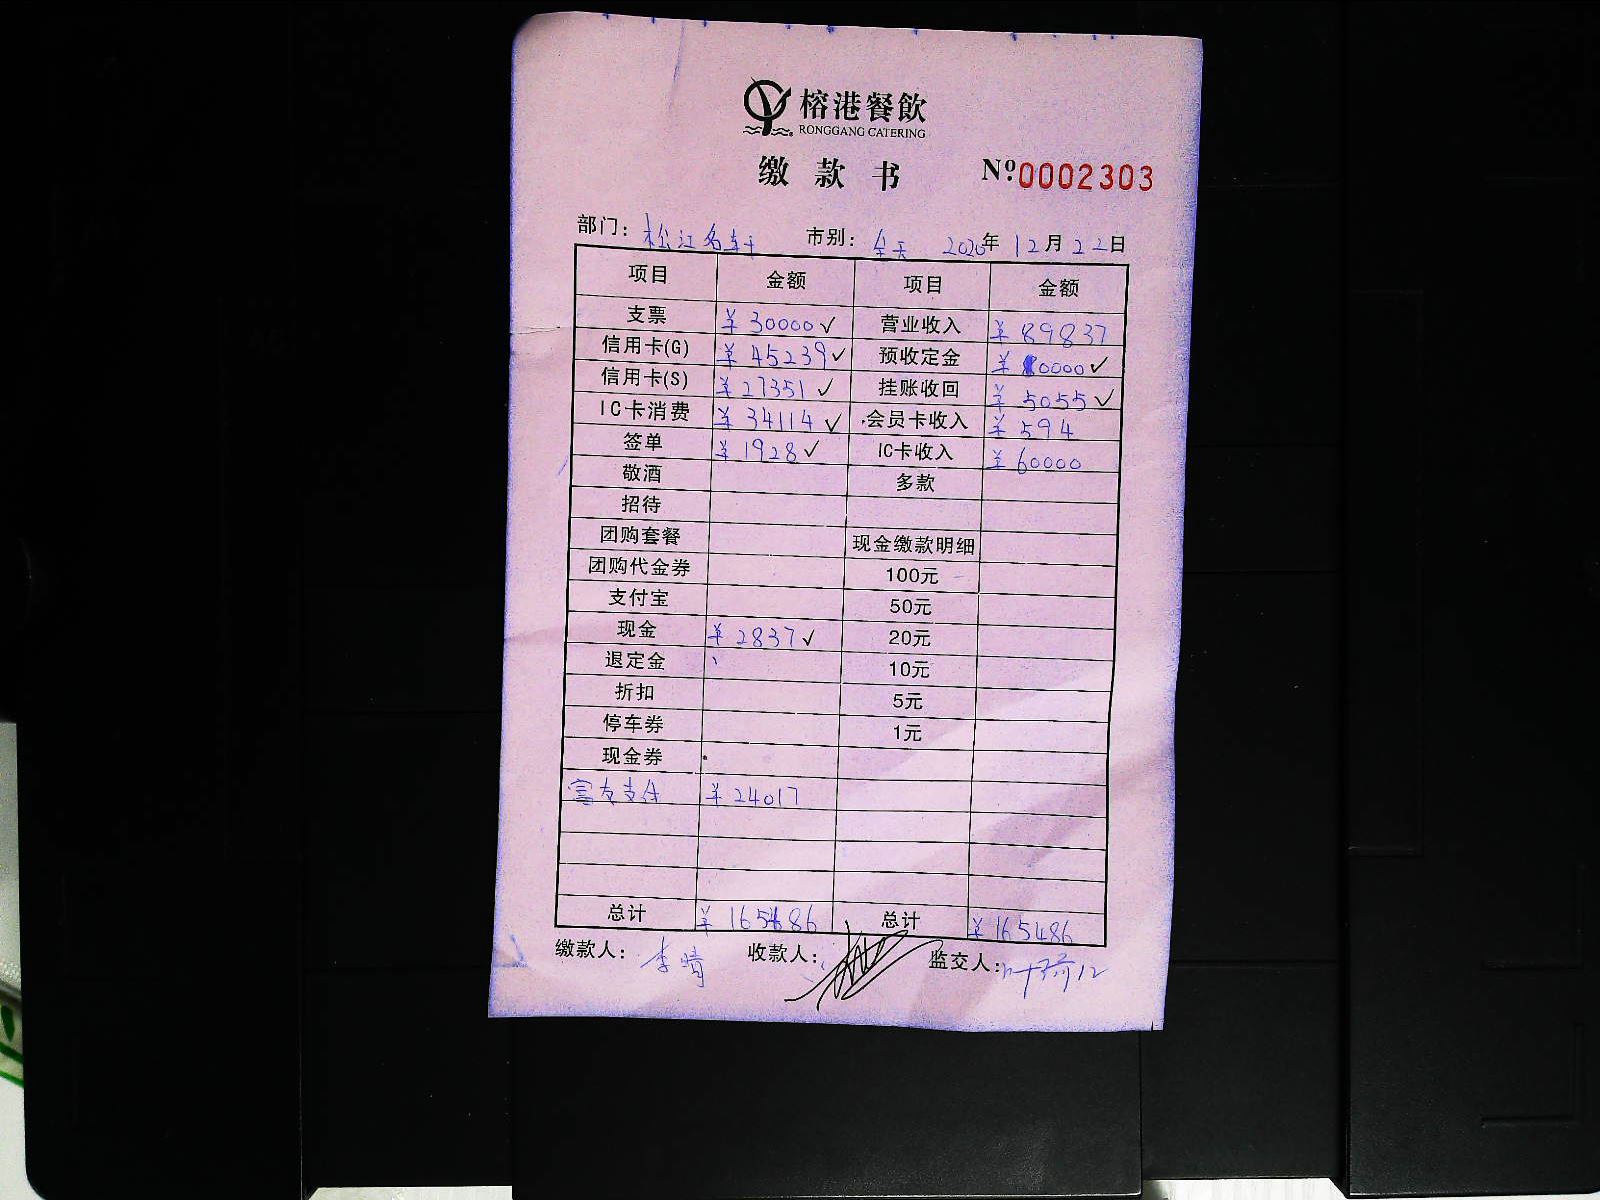 榕港餐飲
RONGGANG CATERING
缴款书 Nº0002303
部门：松江名轩 市别：全天 2020年12月22日
项目 金额 项目 金额
支票 ¥30000✓ 营业收入 ¥89837
信用卡(G) ¥45239✓ 预收定金 ¥10000✓
信用卡(S) ¥27351✓ 挂账收回 ¥5055✓
IC卡消费 ¥34114✓ 会员卡收入 ¥594
签单 ¥1928✓ IC卡收入 ¥60000
敬酒 多款
招待
团购套餐 现金缴款明细
团购代金券 100元
支付宝 50元
现金 ¥2837✓ 20元
退定金 10元
折扣 5元
停车券 1元
现金券
富友支付 ¥24017
总计 ¥165486 总计 ¥165486
缴款人：李晴 收款人： 监交人：